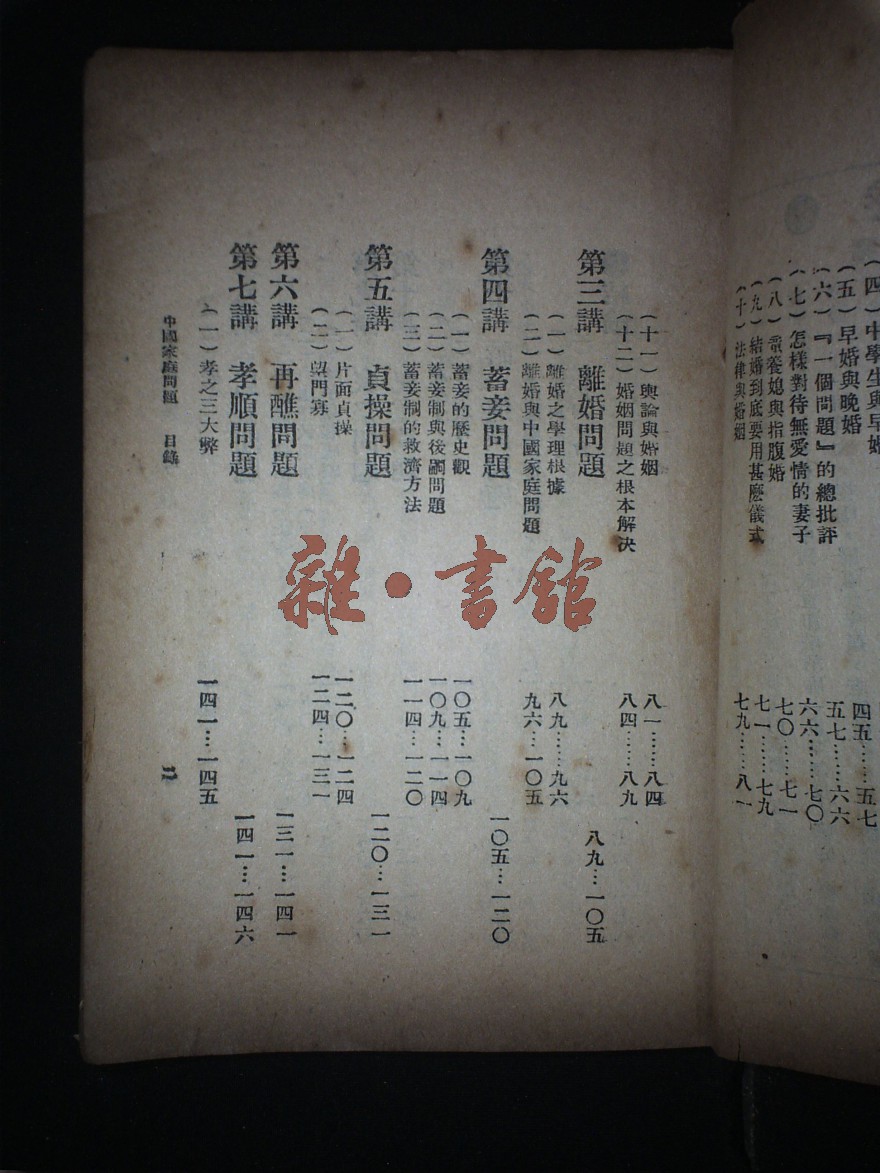 (四)中學生與早婚 四五……五七
(五)早婚與晚婚 五七……六六
(六)『一個問題』的總批評 六六……七〇
(七)怎樣對待無愛情的妻子 七〇……七一
(八)童養媳與指腹婚 七一……七九
(九)結婚到底要用甚麽儀式 七九……八一
(十)法律與婚姻
(十一)輿論與婚姻 八一……八四
(十二)婚姻問題之根本解決 八四……八九
第三講 離婚問題 八九…一〇五
(一)離婚之學理根據 八九……九六
(二)離婚與中國家庭問題 九六…一〇五
第四講 蓄妾問題 一〇五…一二〇
(一)蓄妾的歷史觀 一〇五…一〇九
(二)蓄妾制與後嗣問題 一〇九…一一四
(三)蓄妾制的救濟方法 一一四…一二〇
第五講 貞操問題 一二〇…一三一
(一)片面貞操 一二〇…一二四
(二)望門寡 一二四…一三一
第六講 再醮問題 一三一…一四一
第七講 孝順問題 一四一…一四六
(一)孝之三大弊 一四一…一四五
中國家庭問題 目錄 二
雜·書館